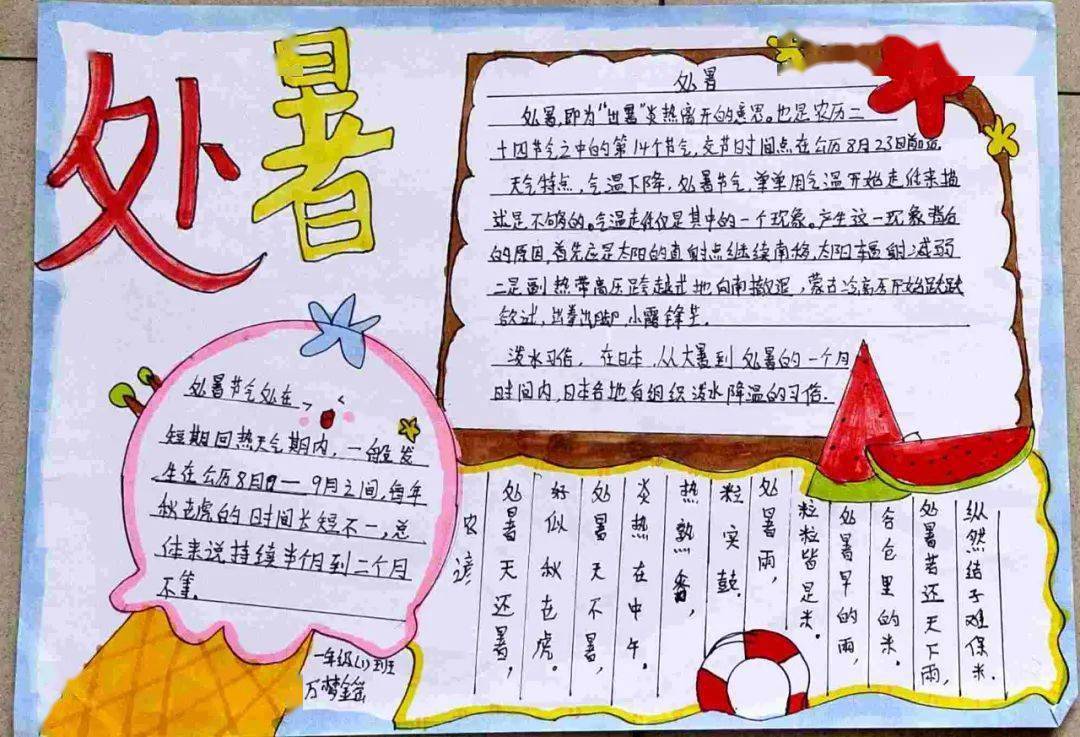 处暑
处暑
处暑,即为“出暑”炎热离开的意思。也是农历二
十四节气之中的第14个节气,交节时间点在公历8月23日前后
天气特点,气温下降,处暑节气,单单用气温开始走低来描
述是不够的。气温走低仅是其中的一个现象。产生这一现象背后
的原因,首先应是太阳的直射点继续南移,太阳辐射减弱
二是副热带高压跨越式地向南撤退,蒙古冷高压开始跃跃
欲试,出拳出脚,小露锋芒.
泼水习俗,在日本,从大暑到处暑的一个月
时间内,日本各地有组织泼水降温的习俗.
处暑节气处在
短期回热天气期内,一般发
生在公历8月 — 9月之间,每年
秋老虎的时间长短不一,总
体来说持续半个月到二个月
不等.
农谚
处暑天还暑,
好似秋老虎。
处暑天不暑,
炎热在中午。
热熟香,
粒实鼓.
处暑雨,
粒粒皆是米.
处暑早的雨,
仓里的米.
处暑若还天下雨,
纵然结子难保米.
一年级(1)班